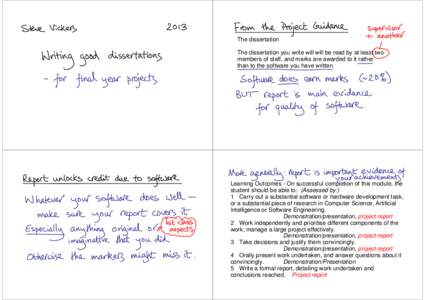 Steve Vickers 2013
Writing good dissertations
- for final year projects
From the Project Guidance
supervisor
+ another
The dissertation
The dissertation you write will be read by at least two
members of staff, and marks are awarded to it rather
than to the software you have written.
Software does earn marks (~20%)
BUT report is main evidence
for quality of software.
Report unlocks credit due to software
Whatever your software does well –
make sure your report covers it.
Especially anything original or
1st class
aspects
imaginative that you did.
Otherwise the markers might miss it.
More generally, report is important evidence of
your achievement
Learning Outcomes - On successful completion of this module, the
student should be able to: (Assessed by:)
1 Carry out a substantial software or hardware development task,
or a substantial piece of research in Computer Science, Artificial
Intelligence or Software Engineering.
Demonstration/presentation, project report
2 Work independently and prioritise different components of the
work; manage a large project effectively.
Demonstration/presentation, project report
3 Take decisions and justify them convincingly.
Demonstration/presentation, project report
4 Orally present work undertaken, and answer questions about it
convincingly. Demonstration/Presentation
5 Write a formal report, detailing work undertaken and
conclusions reached. Project report